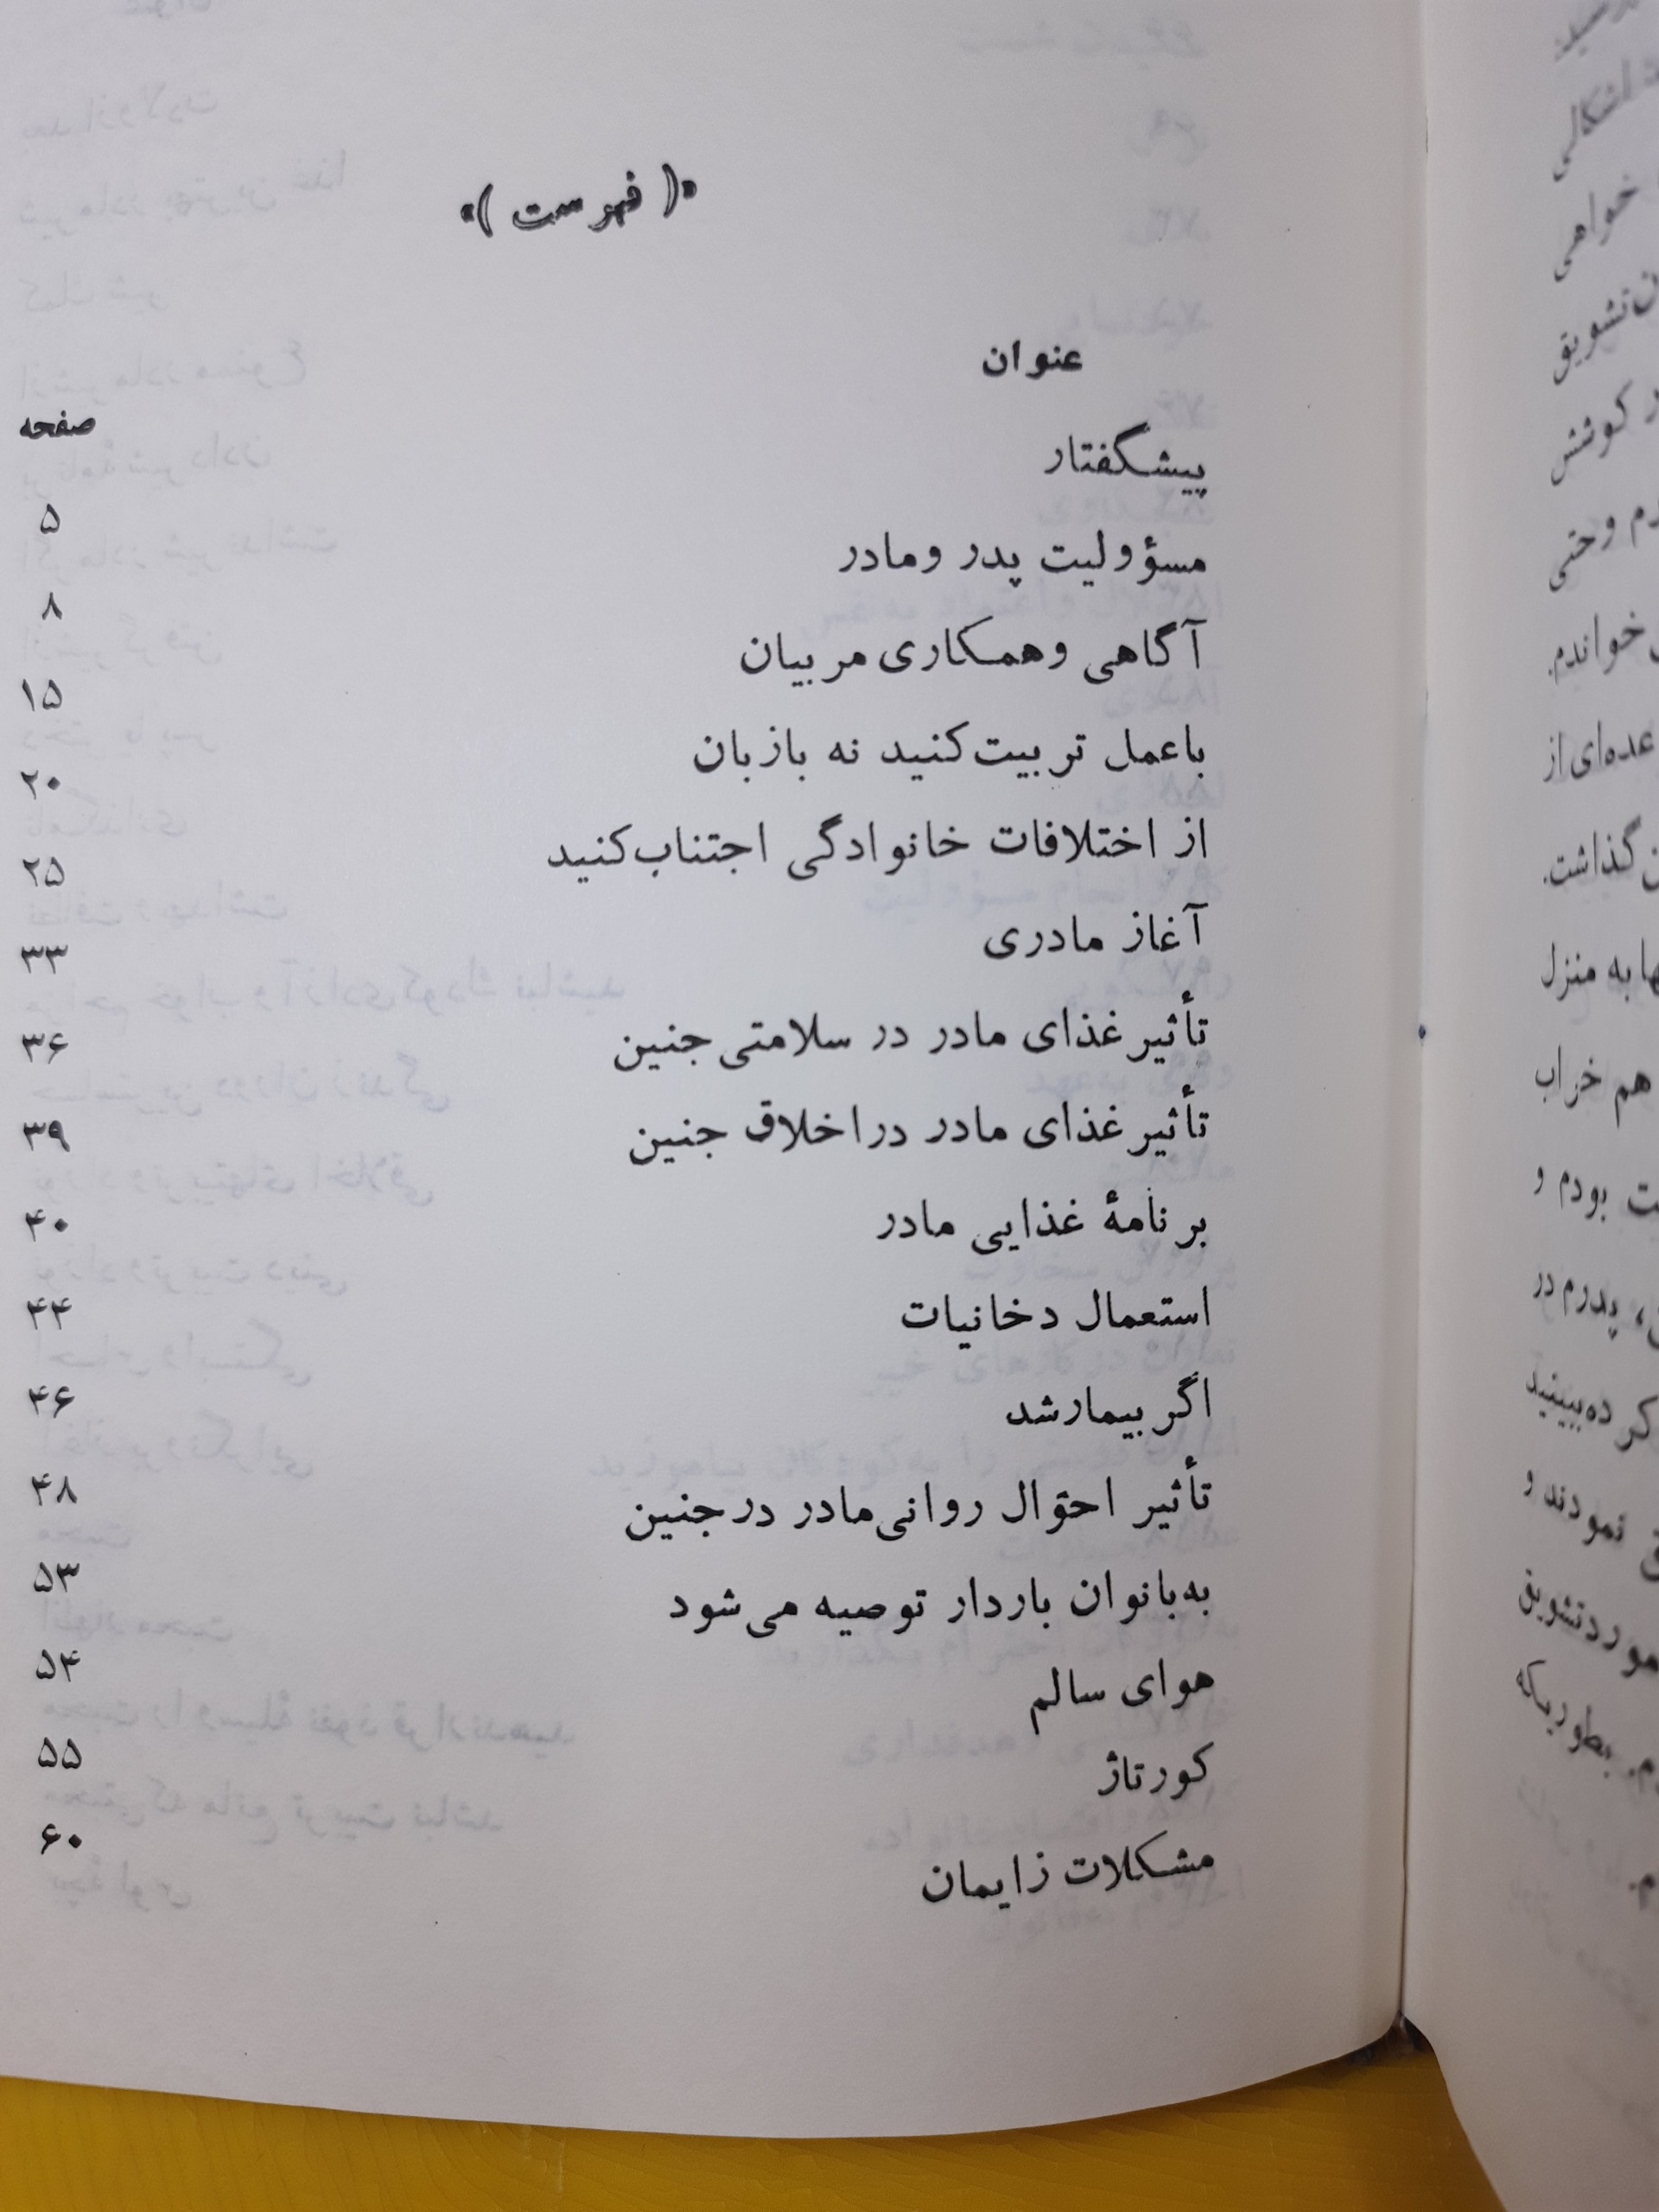 اشکالی
خواهی
تشویق
کوشش
وحتی
خواندم.
عده‌ای از
گذاشت.
به منزل
هم خراب
بودم و
پدرم در
نمودند و
تشویق
«(فهرست)»
عنوان صفحه
پیشگفتار ۵
مسؤولیت پدر ومادر ۸
آگاهی وهمکاری مربیان ۱۵
باعمل تربیت‌کنید نه بازبان ۲۰
از اختلافات خانوادگی اجتناب‌کنید ۲۵
آغاز مادری ۳۳
تأثیر غذای مادر در سلامتی جنین ۳۶
تأثیر غذای مادر دراخلاق جنین ۳۹
برنامهٔ غذایی مادر ۴۰
استعمال دخانیات ۴۴
اگر بیمارشد ۴۶
تأثیر احوال روانی‌مادر درجنین ۴۸
به‌بانوان باردار توصیه می‌شود ۵۳
هوای سالم ۵۴
کورتاژ ۵۵
مشکلات زایمان ۶۰